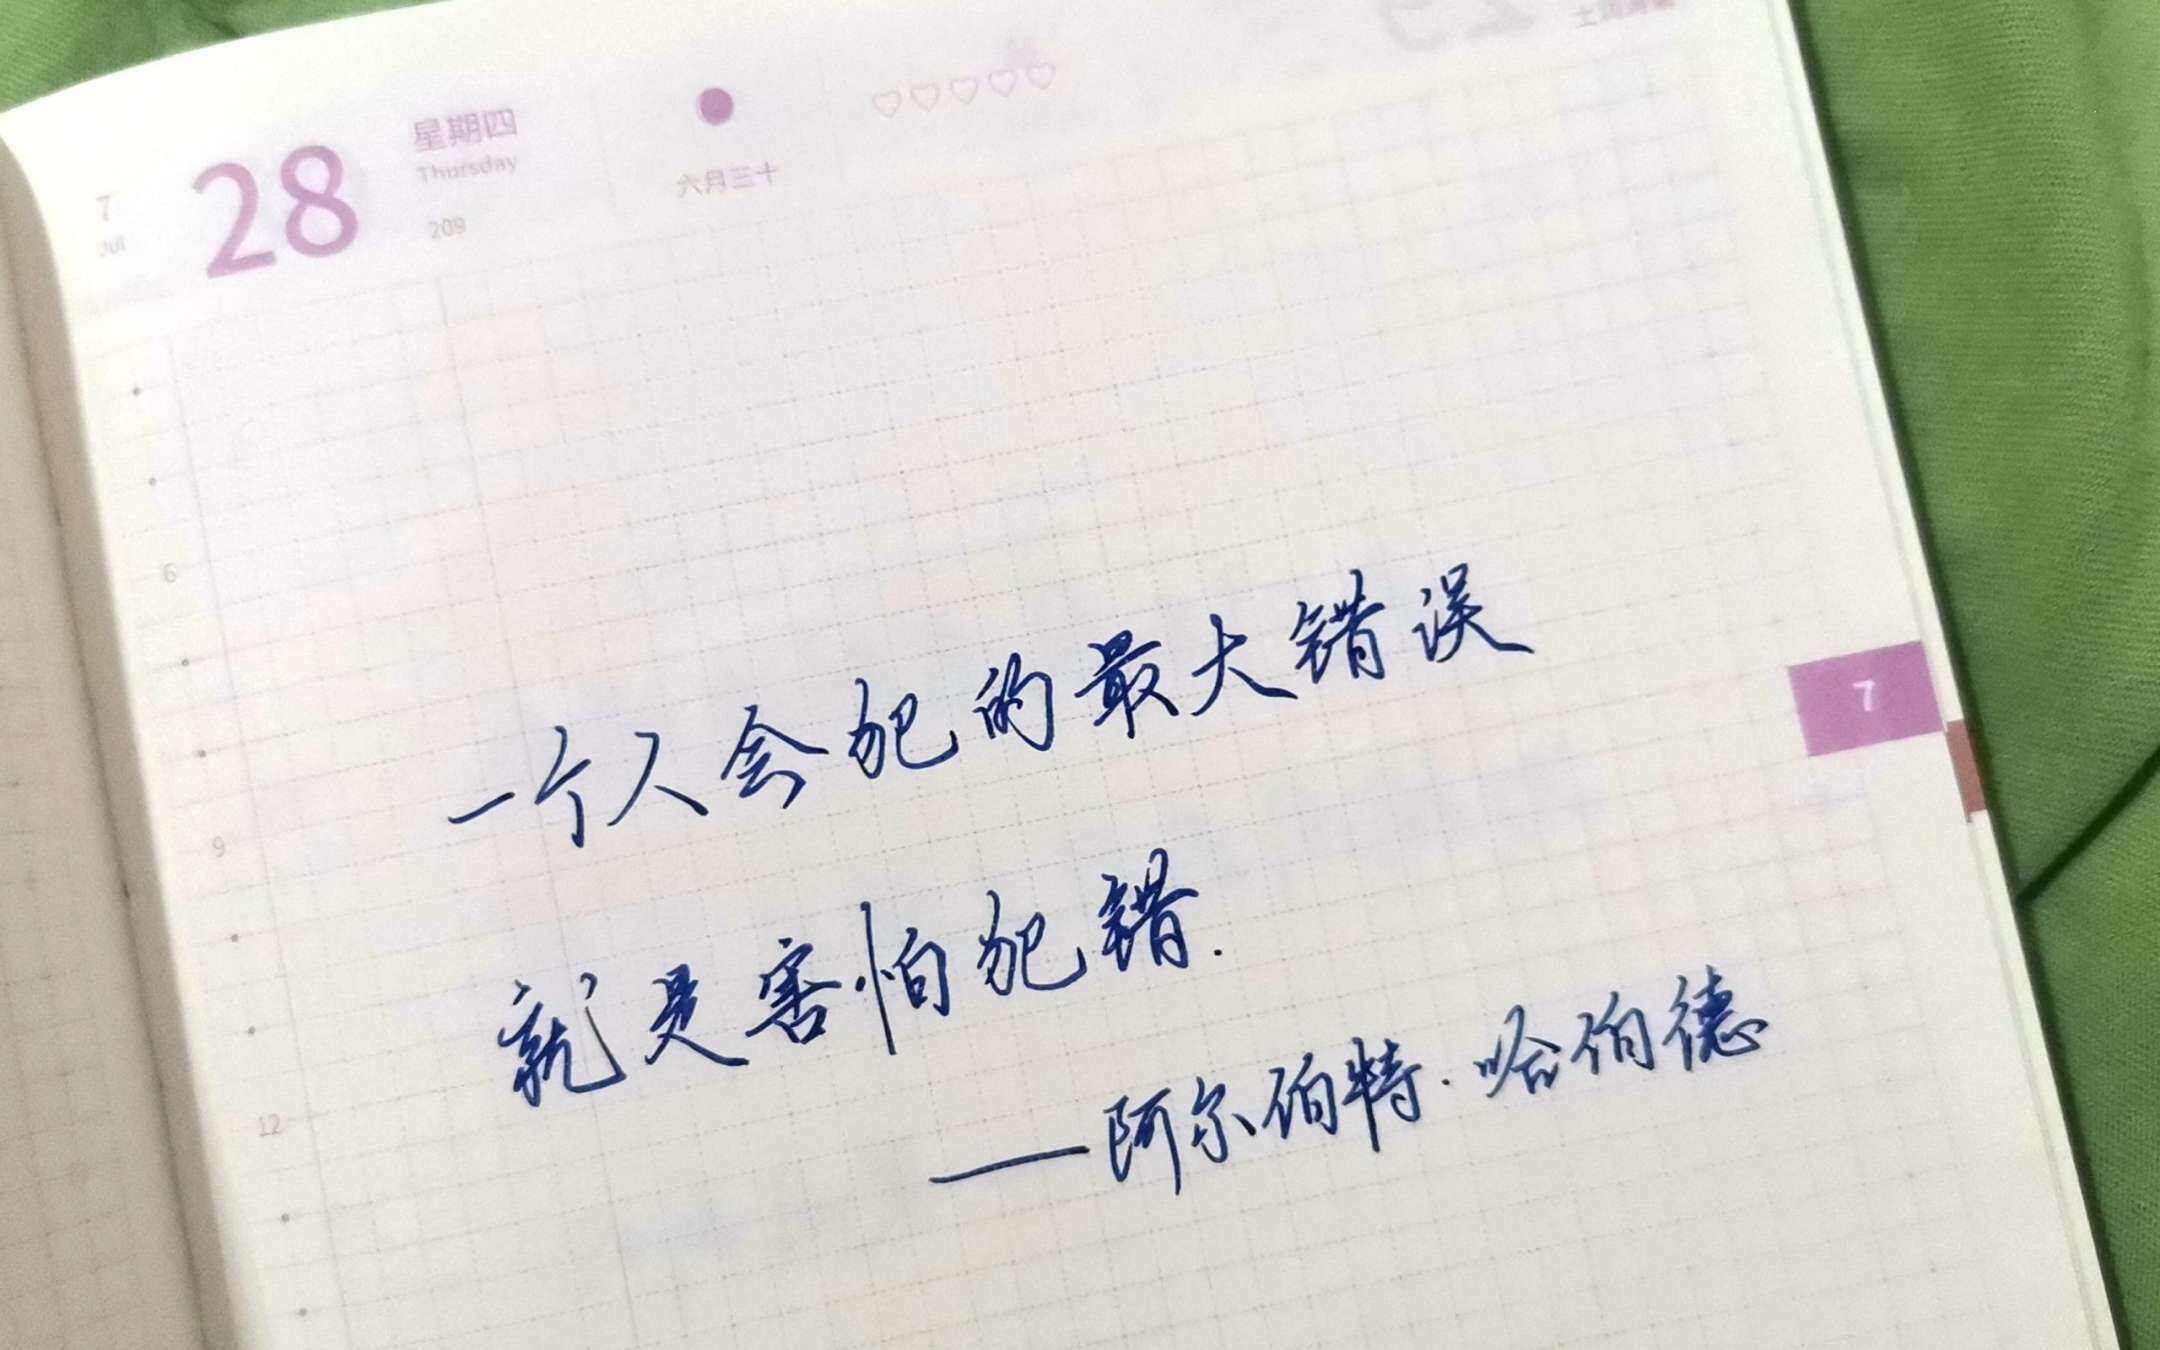 7
Jul
28
星期四
Thursday
209
六月三十
6
一个人会犯的最大错误
7
9
就是害怕犯错.
12
——阿尔伯特·哈伯德